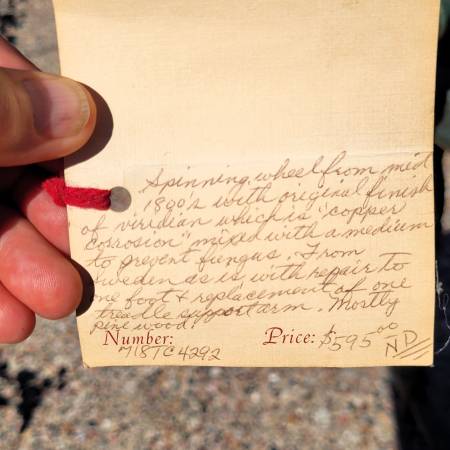 Spinning wheel from mid
1800's with original finish
of viridian which is "copper
corrosion" mixed with a medium
to prevent fungus. From
Sweden as is, with repair to
one foot + replacement of one
treadle support arm. Mostly
pine wood.
Number: 718TC4292
Price: $595.00
ND